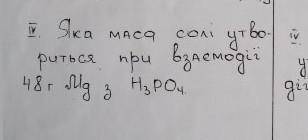 IV. Яка маса солі утво-
риться при взаємодії
48 г Mg з H₃PO₄.
IV
у
дії